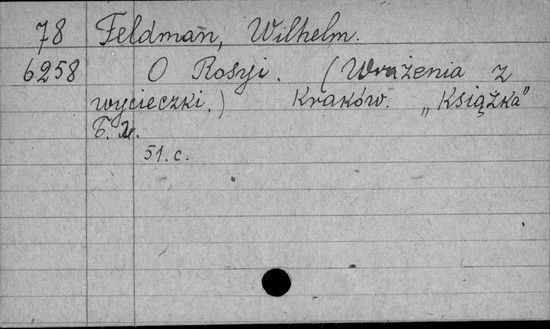 78 Feldman, Wilhelm.
6258 O Rosyi. (Wrażenia z
wycieczki.) Kraków. „Książka”
Б. г.
51. c.